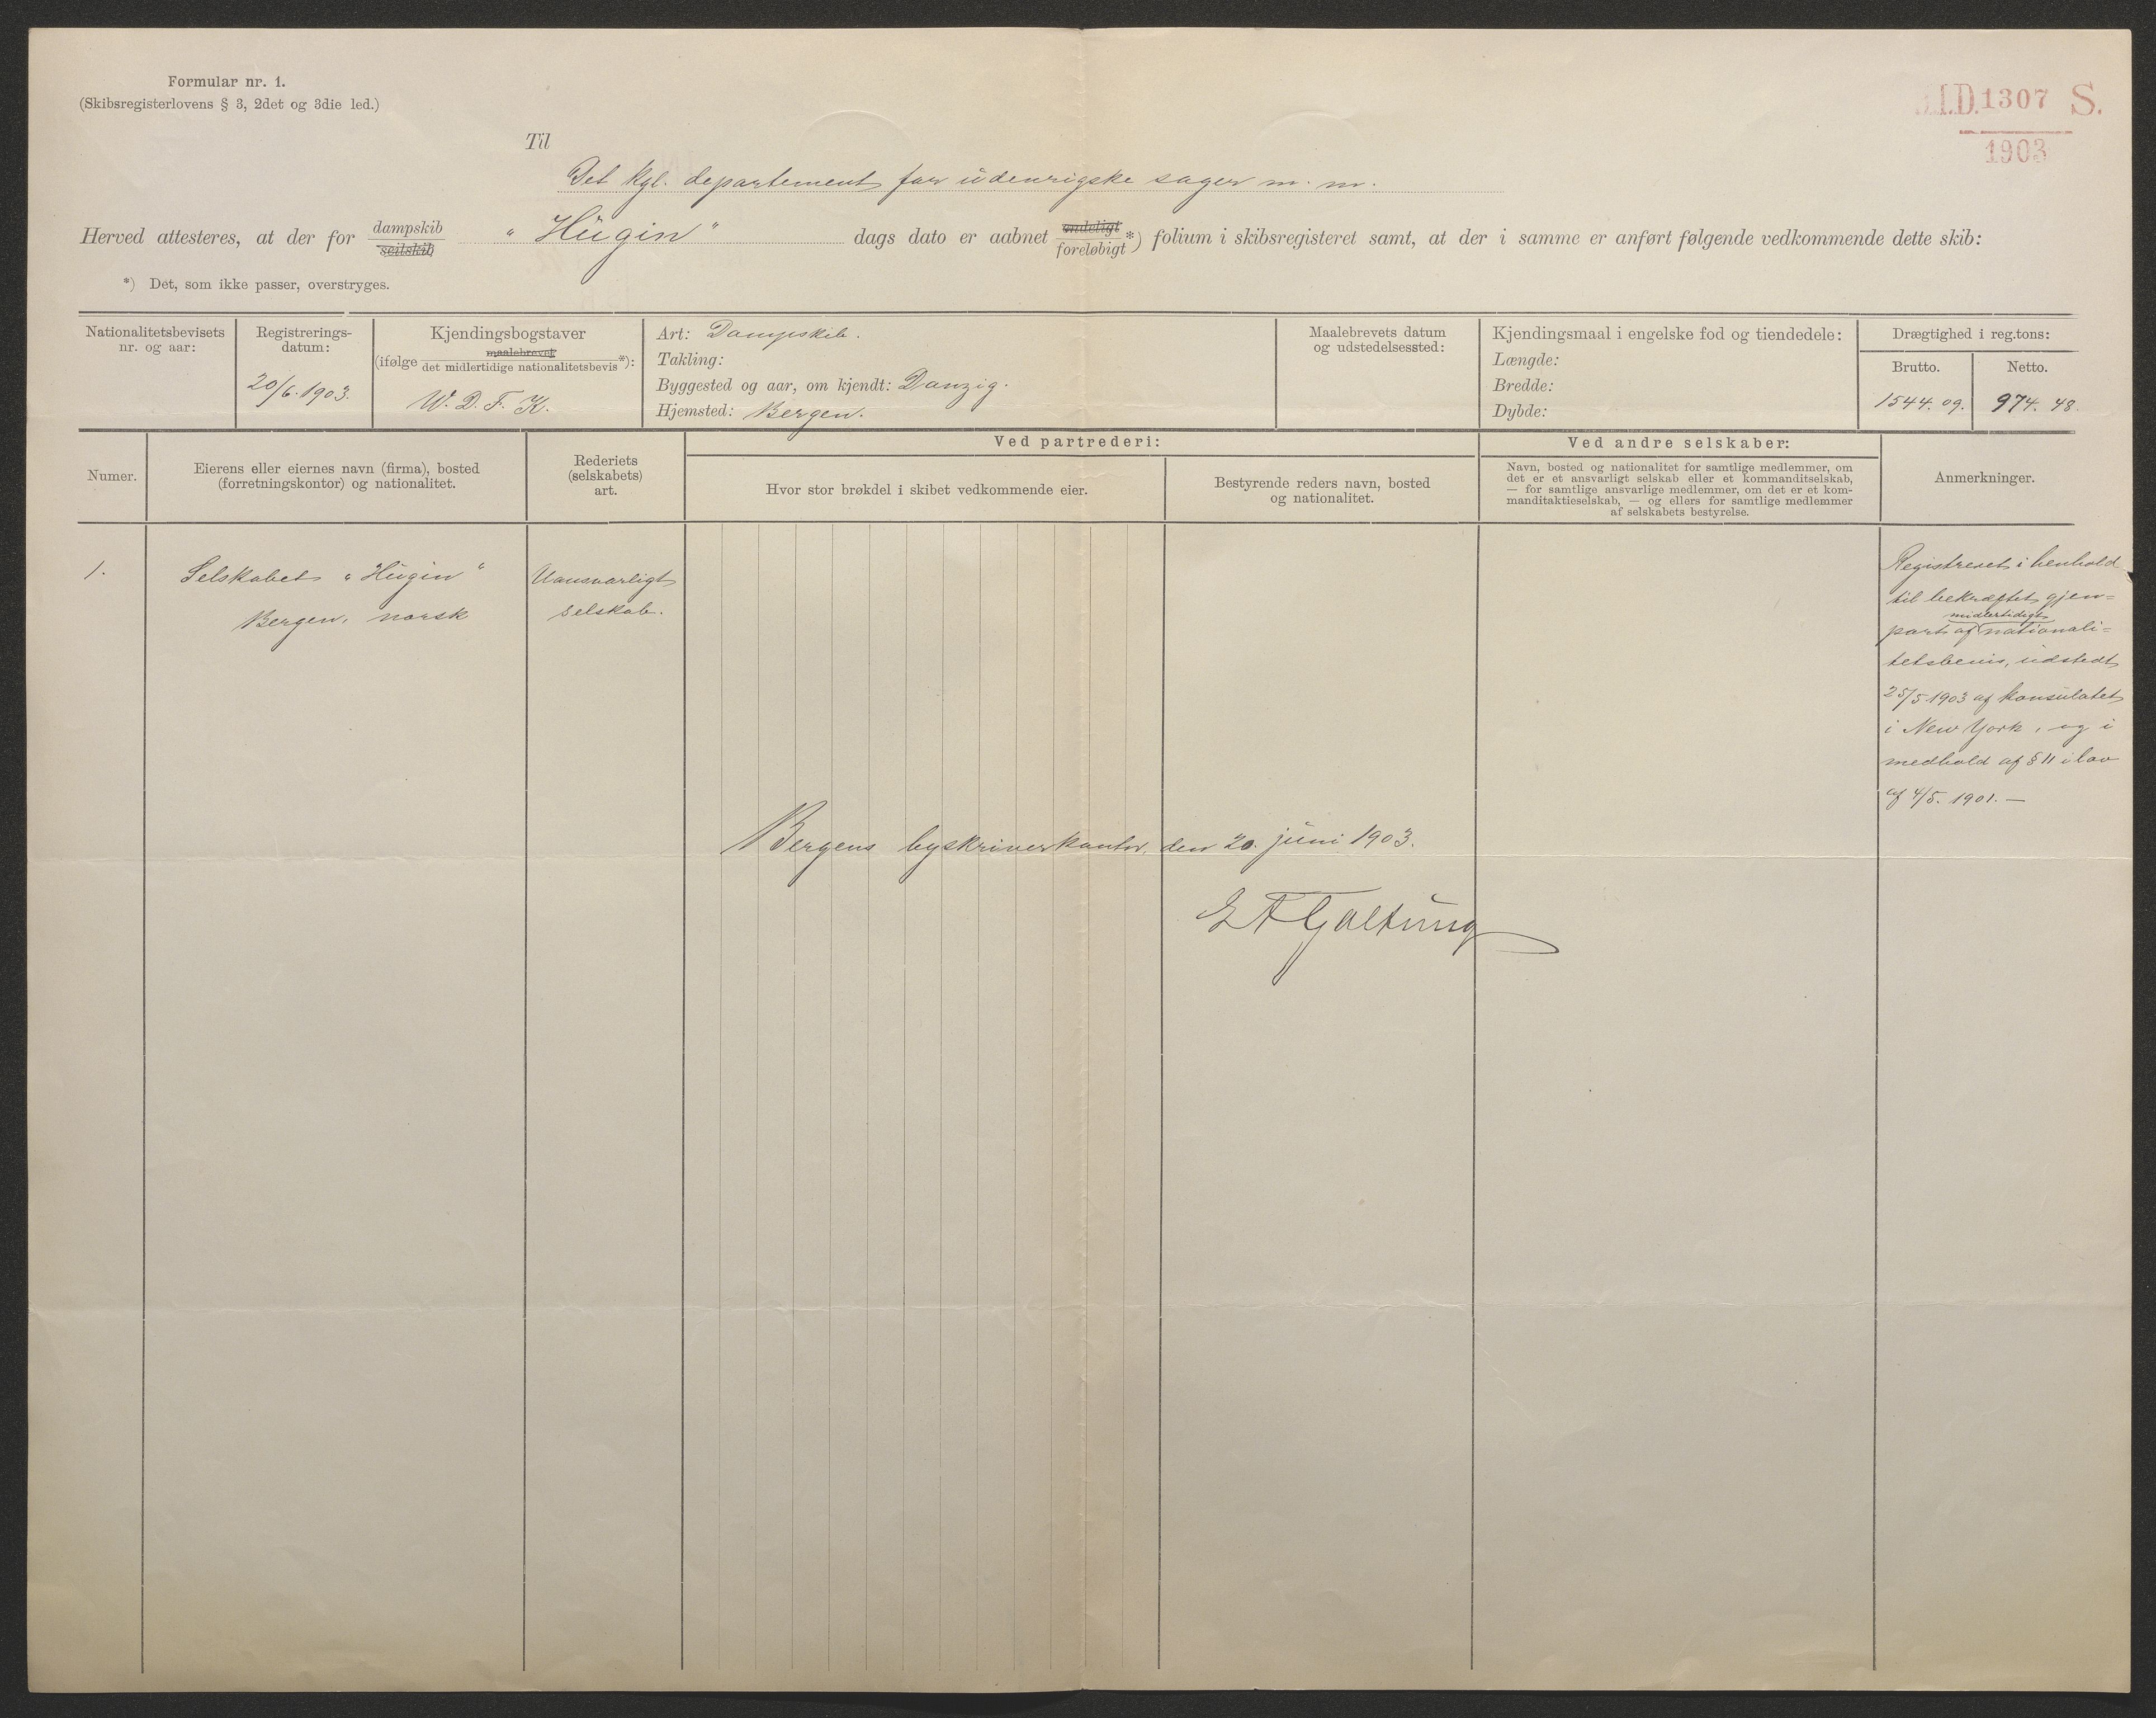 Formular nr. 1.
(Skibsregisterlovens § 3, 2det og 3die led.)
I.D. 1307 S.
1903
Til
Det kgl. departement for udenrigske sager m. m.
Herved attesteres, at der for dampskib seilskib "Hugin" dags dato er aabnet endeligt foreløbigt *) folium i skibsregisteret samt, at der i samme er anført følgende vedkommende dette skib:
*) Det, som ikke passer, overstryges.
Nationalitetsbevisets
nr. og aar:
Registrerings-
datum:
20/6. 1903.
Kjendingsbogstaver
(ifølge maalebrevet det midlertidige nationalitetsbevis *):
W. D. F. K.
Art: Dampskib.
Takling:
Byggested og aar, om kjendt: Danzig.
Hjemsted: Bergen.
Maalebrevets datum
og udstedelsessted:
Kjendingsmaal i engelske fod og tiendedele:
Længde:
Bredde:
Dybde:
Drægtighed i reg.tons:
Brutto.
1544. 09.
Netto.
974. 48.
Numer.
Eierens eller eiernes navn (firma), bosted
(forretningskontor) og nationalitet.
Rederiets
(selskabets)
art.
Ved partrederi:
Hvor stor brøkdel i skibet vedkommende eier.
Bestyrende reders navn, bosted
og nationalitet.
Ved andre selskaber:
Navn, bosted og nationalitet for samtlige medlemmer, om
det er et ansvarligt selskab eller et kommanditselskab,
— for samtlige ansvarlige medlemmer, om det er et kom-
manditaktieselskab, — og ellers for samtlige medlemmer
af selskabets bestyrelse.
Anmerkninger.
1.
Selskabet "Hugin"
Bergen, norsk
Uansvarligt
selskab.
Registreret i henhold
til bekræftet gjen=
midlertidigt
part af nationali=
tetsbevis, udstedt
25/5 1903 af konsulatet
i New York, og i
medhold af § 11 i lov
af 4/5. 1901. —
Bergens byskriverkontor, den 20. juni 1903.
Galtung